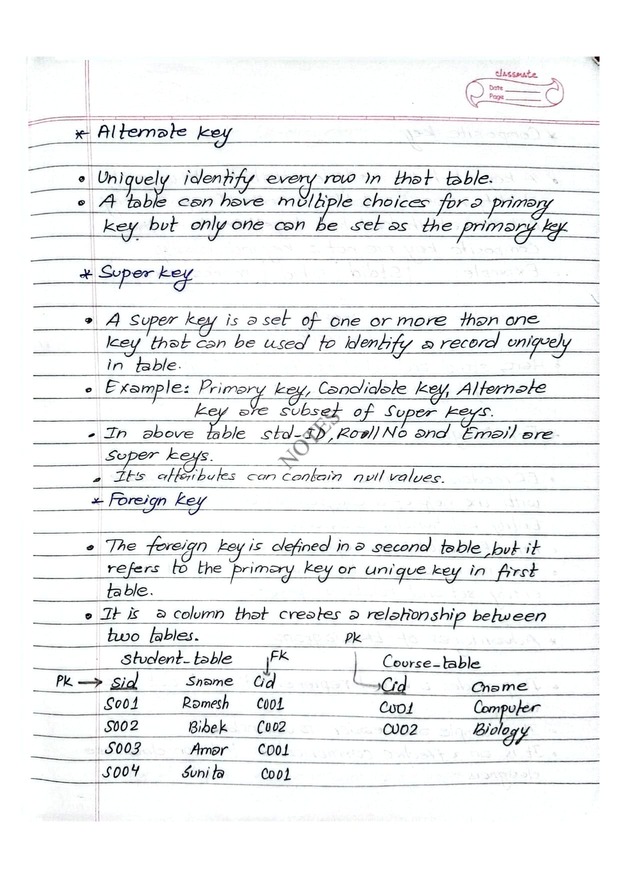 classmate
Date
Page
* Alternate key
• Uniquely identify every row in that table.
• A table can have multiple choices for a primary
key but only one can be set as the primary key.
* Super key
• A super key is a set of one or more than one
key that can be used to identify a record uniquely
in table.
• Example: Primary key, Candidate key, Alternate
key are subset of super keys.
• In above table std-ID, Roll No and Email are
super keys.
• It's attributes can contain null values.
NOTES
* Foreign key
• The foreign key is defined in a second table, but it
refers to the primary key or unique key in first
table.
• It is a column that creates a relationship between
two tables. PK
Student-table FK Course-table
PK → Sid Sname Cid Cid Cname
S001 Ramesh C001 C001 Computer
S002 Bibek C002 C002 Biology
S003 Amar C001
S004 Sunita C001